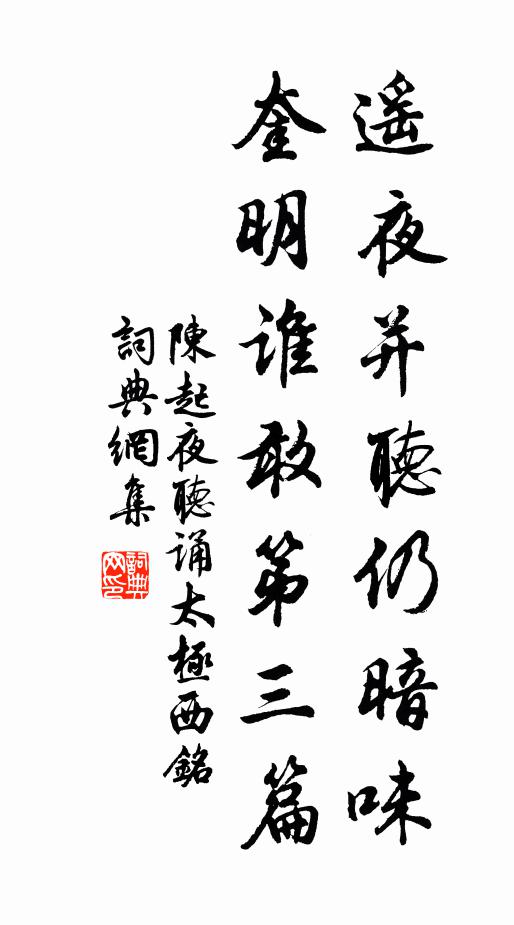 遥夜并聽仍暗味
奎明谁敢第三篇
陳起夜聽诵太極西銘
詞典網集
詞典网印